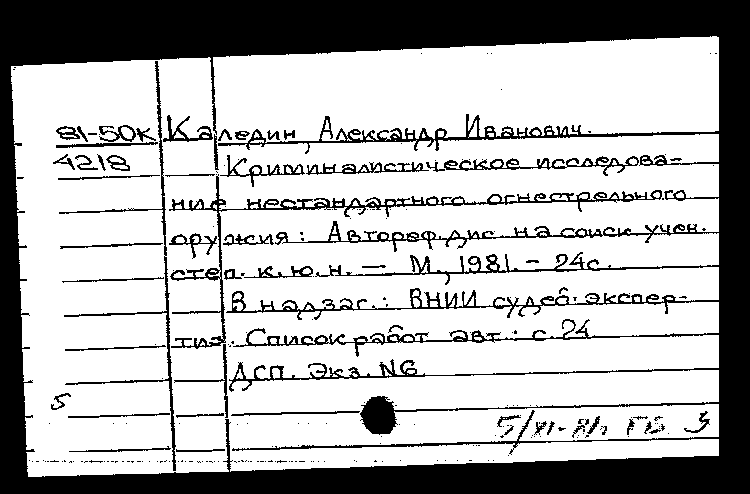 81-50к Каледин, Александр Иванович.
4218 Криминалистическое исследова-
ние нестандартного огнестрельного
оружия: Автореф. дис. на соиск. учен.
степ. к. ю. н. — М., 1981. - 24с.
В надзаг.: ВНИИ судеб. экспер-
тиз. Список работ авт.: с. 24
ДСП. Экз. N6
5
5/XI-81г.